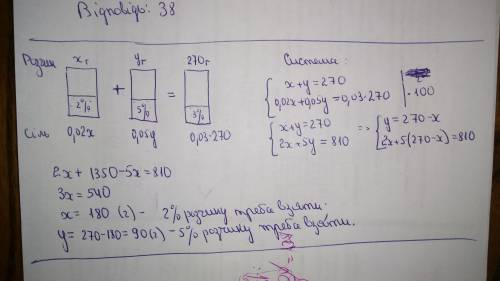 Відповідь: 38
Розчин x г y г 270 г
2% + 5% = 3%
Сіль 0,02x 0,05y 0,03·270
Система:
{ x+y=270
0,02x+0,05y=0,03·270 | ·100
{ x+y=270
2x+5y=810
=> { y=270-x
2x+5(270-x)=810
2x+1350-5x=810
3x=540
x=180 (г) - 2% розчину треба взяти.
y=270-180=90(г) - 5% розчину треба взяти.